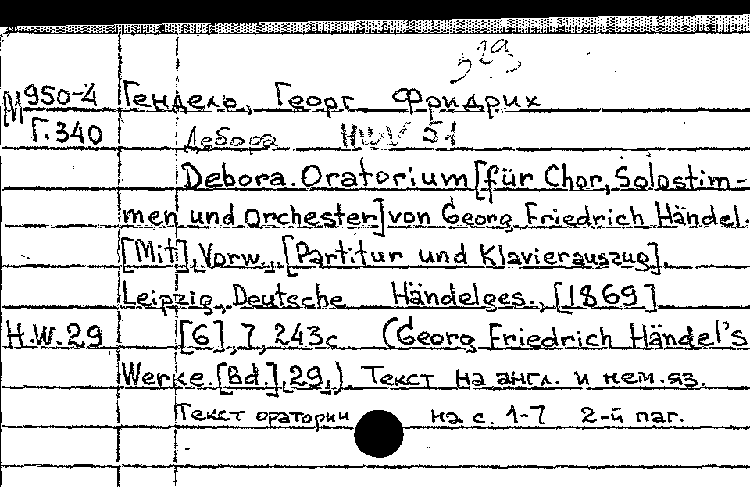 529
М950-4 Гендель, Георг Фридрих
Г.340 Дебора HWV 51
Debora. Oratorium [für Chor, Solostim-
men und Orchester] von Georg Friedrich Händel.
[Mit] Vorw., [Partitur und Klavierauszug].
Leipzig, Deutsche Händelges., [1869]
H.W.29 [6], 7, 243с (Georg Friedrich Händel's
Werke. [Bd.], 29,). Текст на англ. и нем. яз.
Текст оратории на с. 1-7 2-й паг.